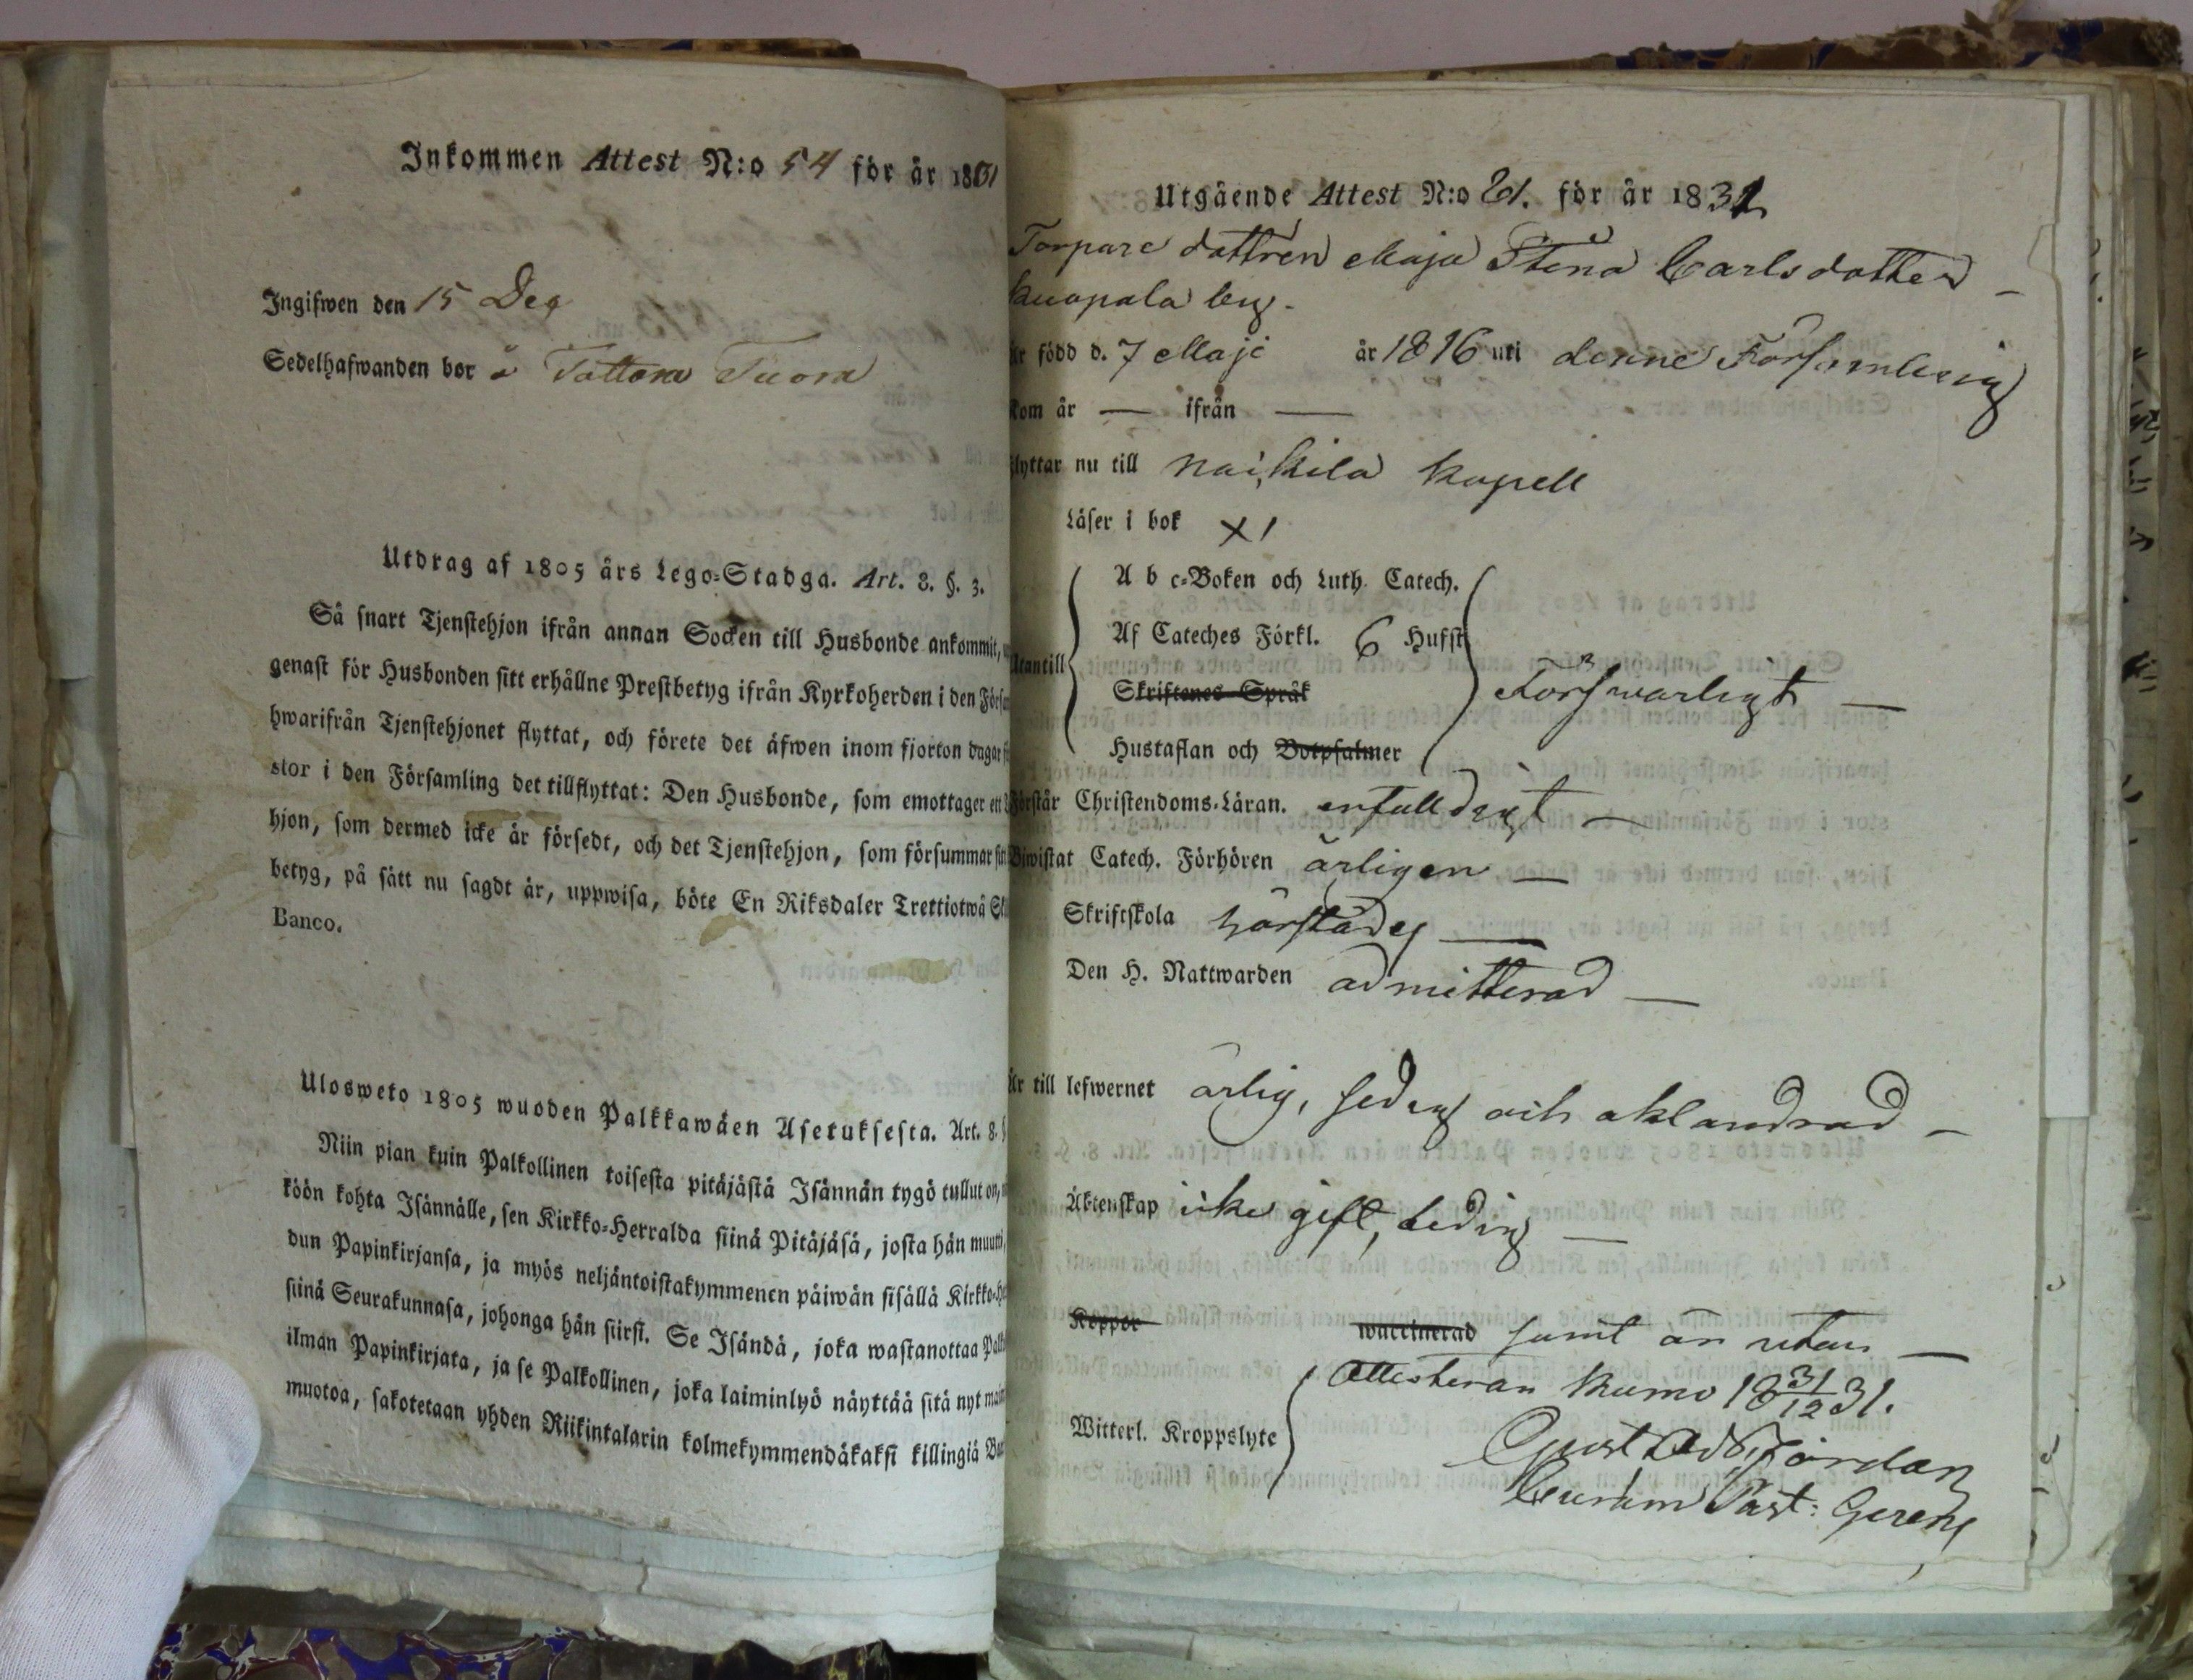 Inkommen Attest N:o 54 för år 1831
Ingifwen den 15 Dec
Sedelhafwanden bor å Tattara Tuora
Utdrag af 1805 års Lego-Stadga. Art. 8. §. 3.
Så snart Tjenstehjon ifrån annan Socken till Husbonde ankommit,
genast för Husbonden sitt erhållne Prestbetyg ifrån Kyrkoherden i den Förs
hwarifrån Tjenstehjonet flyttat, och förete det äfwen inom fjorton dagar
stor i den Församling det tillflyttat: Den Husbonde, som emottager ett
hjon, som dermed icke är försedt, och det Tjenstehjon, som försummar sitt
betyg, på sätt nu sagdt är, uppwisa, böte En Riksdaler Trettiotwå Sk
Banco.
Ulosweto 1805 wuoden Palkkawäen Asetuksesta. Art. 8. §
Niin pian kuin Palkollinen toisesta pitäjästä Isännän tygö tullut on,
köön kohta Isännälle, sen Kirkko-Herralda siinä Pitäjäsä, josta hän muutti,
dun Papinkirjansa, ja myös neljäntoistakymmenen päiwän sisällä Kirkko-He
siinä Seurakunnasa, johonga hän siirst. Se Isändä, joka wastanottaa Palk
ilman Papinkirjata, ja se Palkollinen, joka laiminlyö näyttää sitä nyt main
muotoa, sakotetaan yhden Riikintalarin kolmekymmendäkaksi killingiä Ban
Utgående Attest N:o 21. för år 1831
Torpare dottren Maja Stina Carlsdotter
Kuopala by.
är född d. 7 Maji år 1816 uti denne Församling
kom år — ifrån —
flyttar nu till Nackila Kapell
Läser i bok X 1
A b c-Boken och Luth. Catech.
Af Cateches Förkl. 6 Hufst
Utantill Skriftenes Språk Försvarligt —
Hustaflan och Botpsalmer
Förstår Christendoms-Läran. enfalldigt —
Biwistat Catech. Förhören årligen —
Skriftskola härstädes —
Den H. Nattwarden admitterad —
Är till lefwernet ärlig, sedig och oklandrad —
Äktenskap icke gift, ledig —
Koppor waccinerad samt är utan —
Attesteran Kumo 18 31/12 31.
Witterl. Kroppslyte
Gust Ad
Curam Past: Gerens